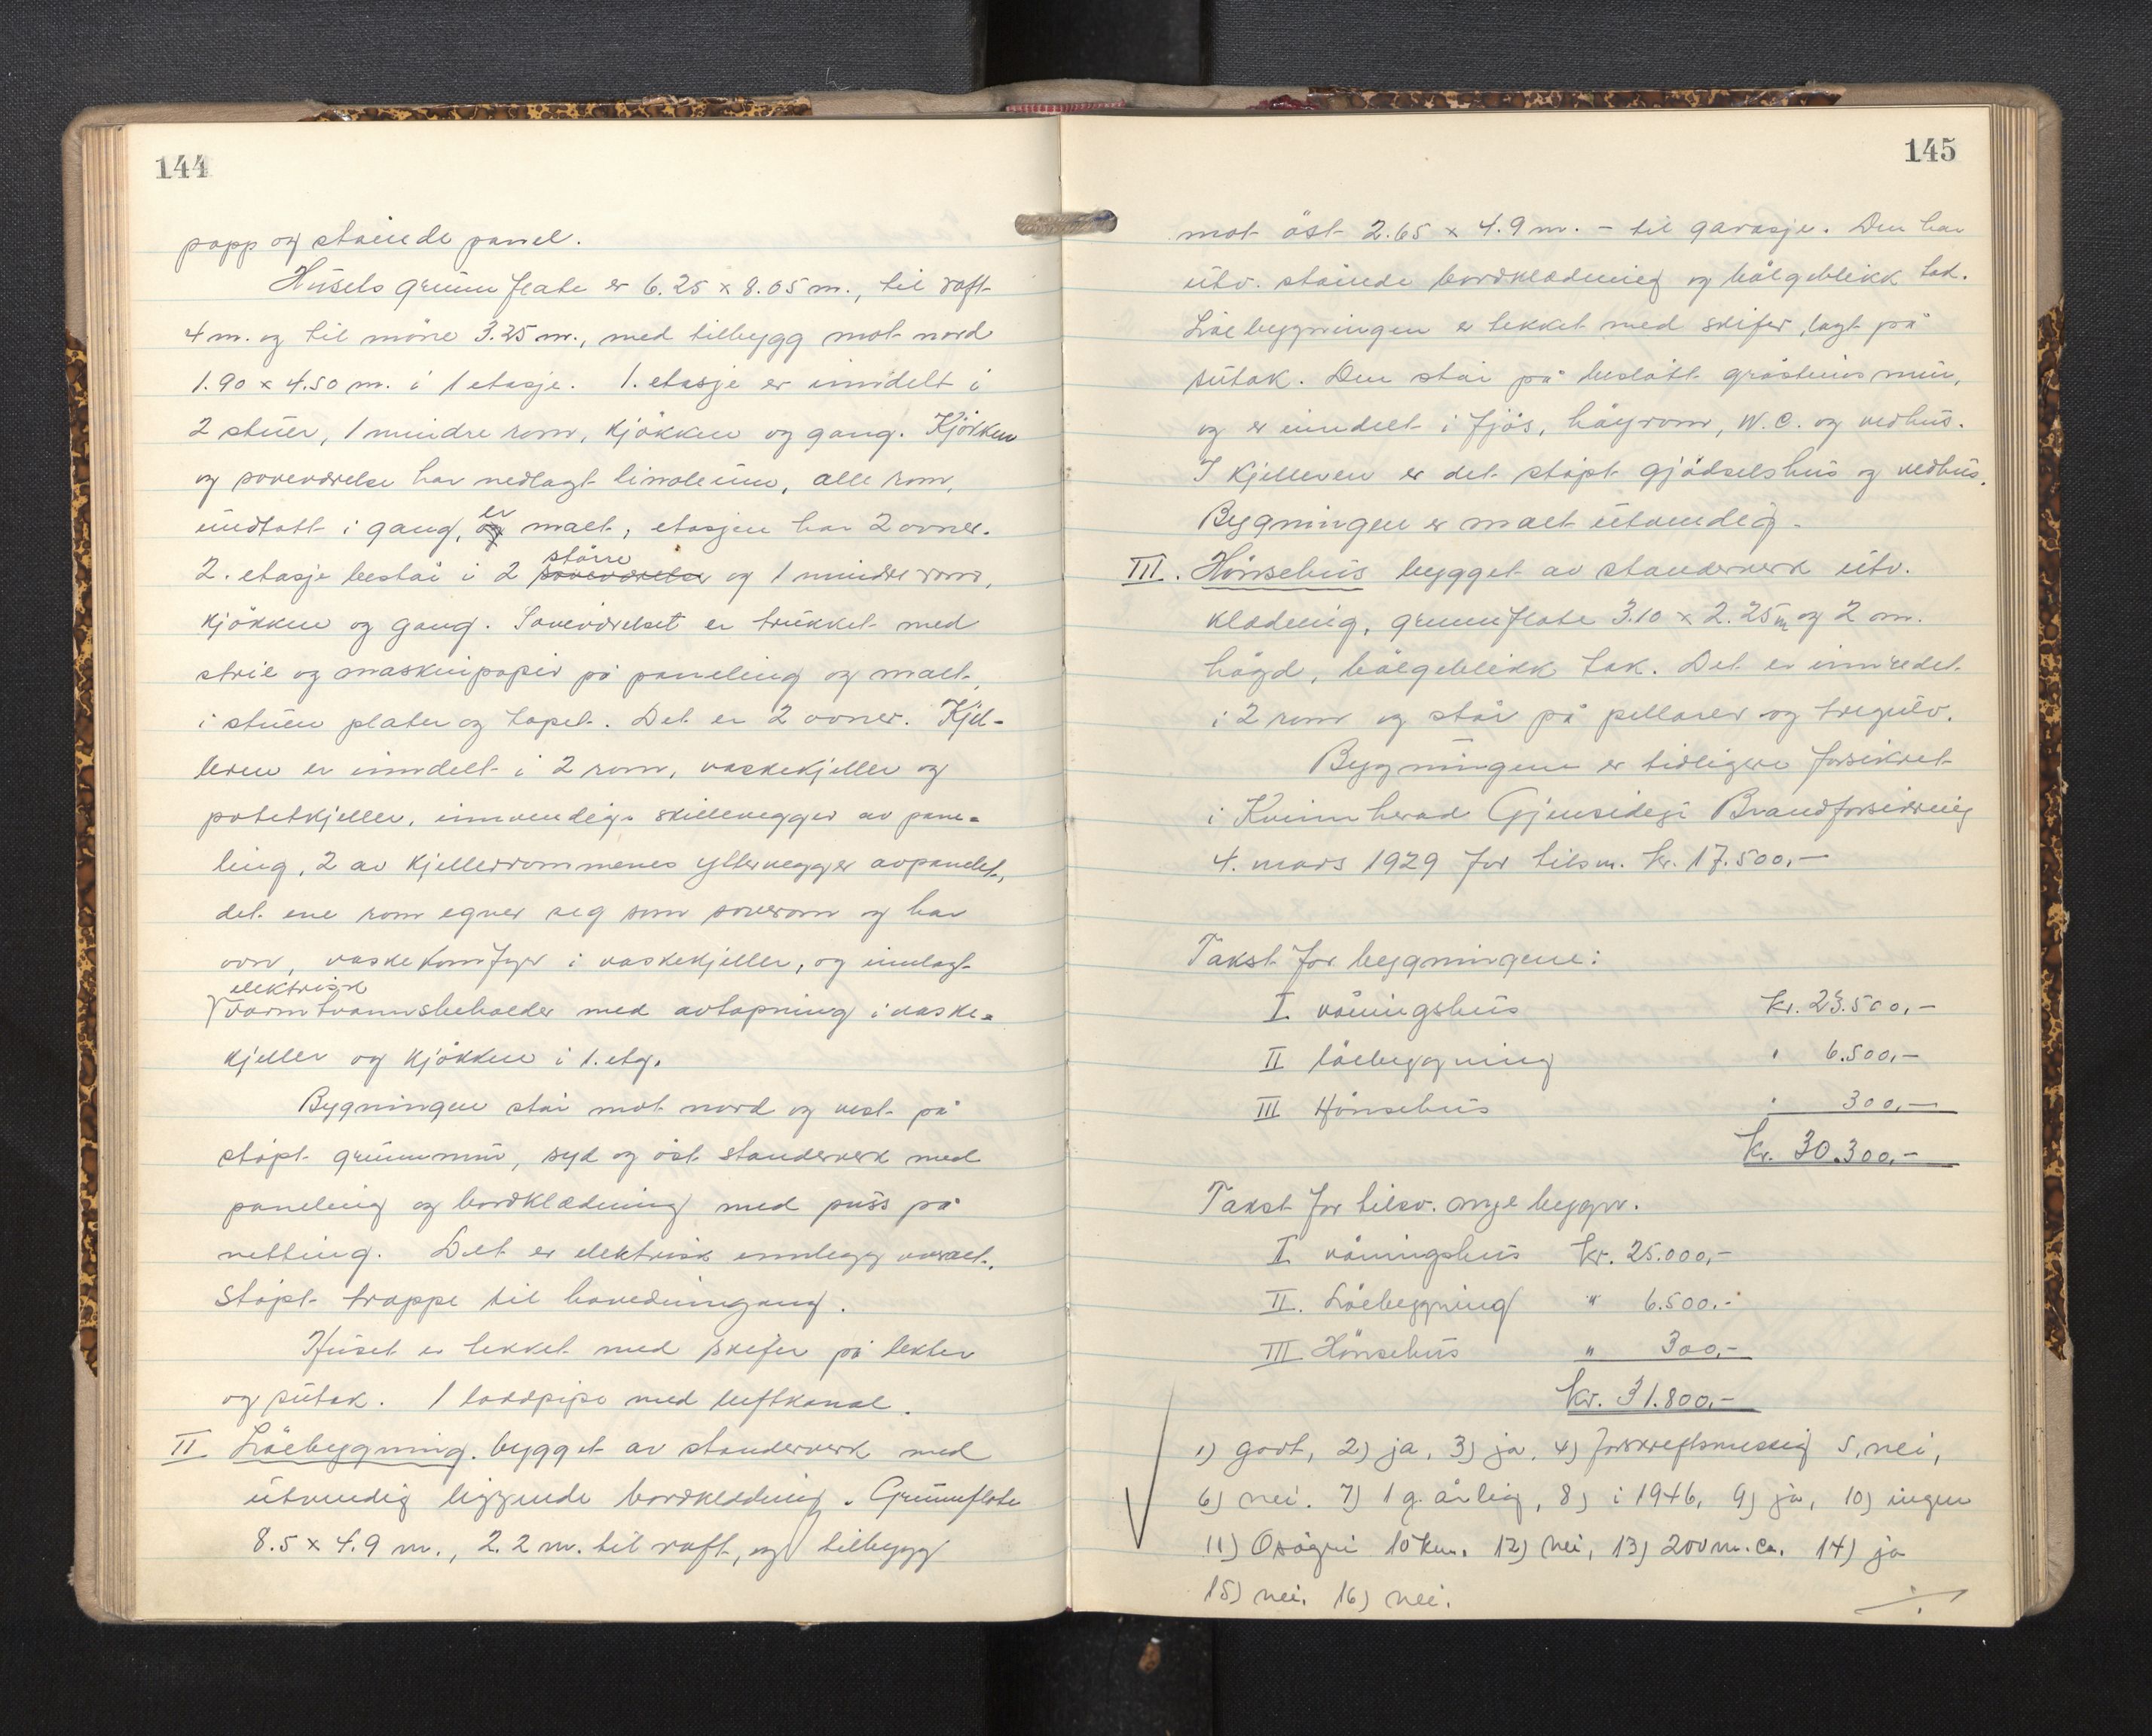 144
papp og stående panel.
Husets grunnflate er 6.25 x 8.05 m., til raft
4 m. og til möne 3.25 m., med tilbygg mot nord
1.90 x 4.50 m. i 1 etasje. 1. etasje er inndelt i
2 stuer, 1 mindre rom, kjökken og gang. Kjökken
og soveværelse har nedlagt linoleum, alle rom,
undtatt i gang, er malt, etasjen har 2 ovner.
2. etasje består i 2 större og 1 mindre rom,
kjökken og gang. Soveværelset er trukket med
strie og maskinpapir på paneling og malt,
i stuen plater og tapet. Det er 2 ovner. Kjel-
leren er inndelt i 2 rom, vaskekjeller og
potetkjeller, innvendige skillevegger av pane-
ling, 2 av kjellerrommenes yttervegger avpanelt,
det ene rom egner seg som soverom og har
ovn, vaskekomfyr i vaskekjeller, og innlagt
elektrisk
varmtvannsbeholder med avtapning i vaske-
kjeller og kjökken i 1. etg.
Bygningen står mot nord og vest på
stöpt grunnmur, syd og öst standerverk med
paneling og bordklædning med puss på
netting. Det er elektrisk innlegg overalt.
Stöpt trappe til hovedinngang.
Huset er tekket med skifer på lekter
og sutak. 1 loddpipe med luftkanal.
II Löebygning. bygget av standerverk med
utvendig liggende bordklædning. Grunnflate
8.5 x 4.9 m., 2.2 m. til raft, og tilbygg
145
mot öst 2.65 x 4.9 m. - til garasje. Den har
utv. stående bordklædning og bölgeblikk tak.
Löebygningen er tekket med skifer, lagt på
sutak. Den står på beslått gråsteinsmur,
og er inndelt i fjös, höyrom, W.C. og vedhus.
I kjelleren er det stöpt gjödselshus og vedhus.
Bygningen er malt utvendig.
III. Hönsehus bygget av standerverk utv.
klædning, grunnflate 3.10 x 2.25 m og 2 m.
högd, bölgeblikk tak. Det er innredet
i 2 rom og står på pillarer og tregulv.
Bygningene er tidligere forsikret
i Kvinnherad Gjensidige Brandforsikring
4. mars 1929 for tilsm. kr. 17.500,-
Takst for bygningene:
I våningshus kr. 23.500,-
II löebygning " 6.500,-
III Hönsehus " 300,-
kr. 30.300,-
Takst for tilsv. nye bygn.
I våningshus kr. 25.000,-
II. Löebygning " 6.500.-
III Hönsehus " 300,-
kr. 31.800,-
1) godt, 2) ja, 3) ja, 4) forskreftsmessig 5, nei,
6) nei. 7) 1 g. årlig, 8) i 1946, 9) ja, 10) ingen
11) 10 km. 12) nei, 13) 200 m. ca. 14) ja
15) nei. 16) nei.